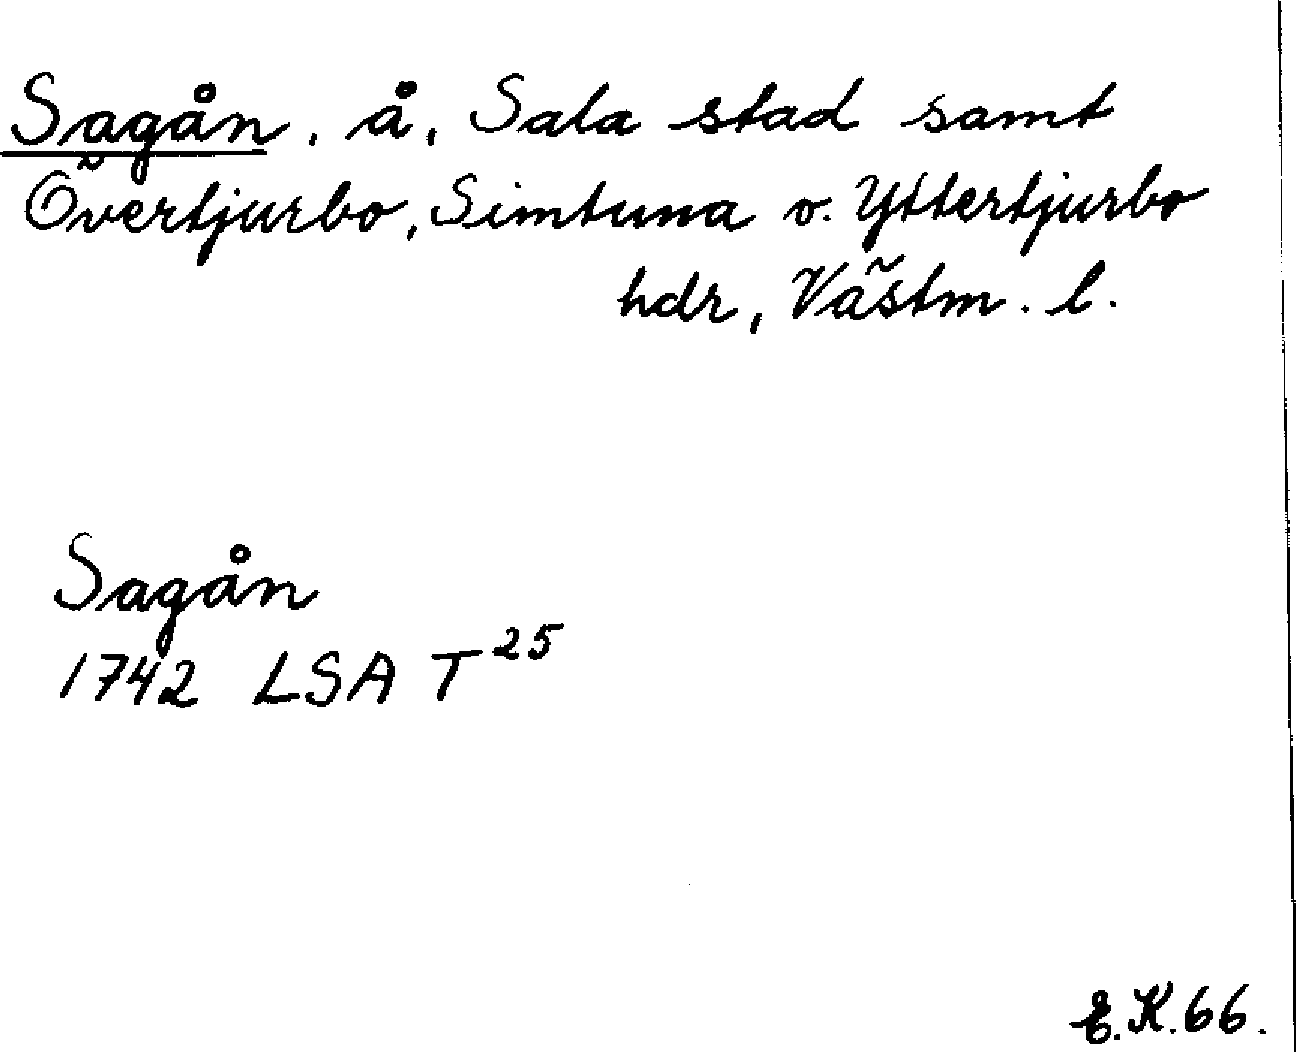 Sagån, å, Sala stad samt
Övertjurbo, Simtuna o. Yttertjurbo
hdr, Västm. l.
Sagån
1742 LSA T 25
E.K.66.